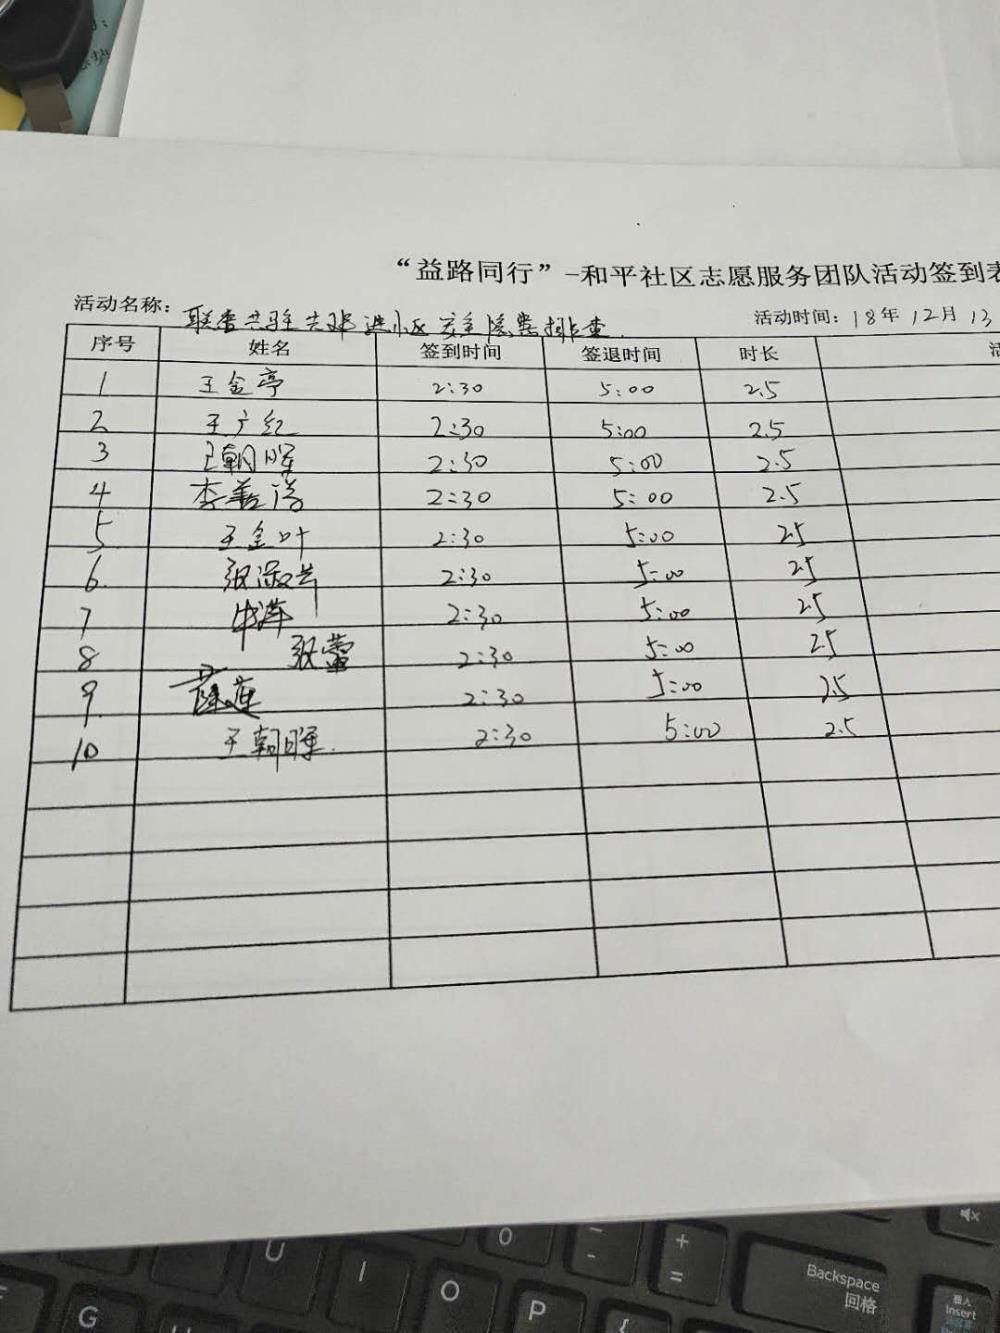 “益路同行”-和平社区志愿服务团队活动签到表
活动名称：联 共驻共 进小区安全隐患排查. 活动时间：18年12月13
序号 姓名 签到时间 签退时间 时长
1 王金亭 2:30 5:00 2.5
2 王广红 2:30 5:00 2.5
3 王朝晖 2:30 5:00 2.5
4 李善 2:30 5:00 2.5
5 王金叶 2:30 5:00 2.5
6. 张淑兰 2:30 5:00 2.5
7 牛萍 2:30 5:00 2.5
8 张蕾 2:30 5:00 2.5
9. 莲 2:30 5:00 2.5
10 王朝晖. 2:30 5:00 2.5
U I O P {
0 - + =
G
Backspace
回格
插入
Insert